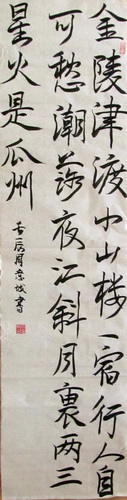 金陵津渡小山楼一宿行人自
可愁潮落夜江斜月裏两三
星火是瓜州